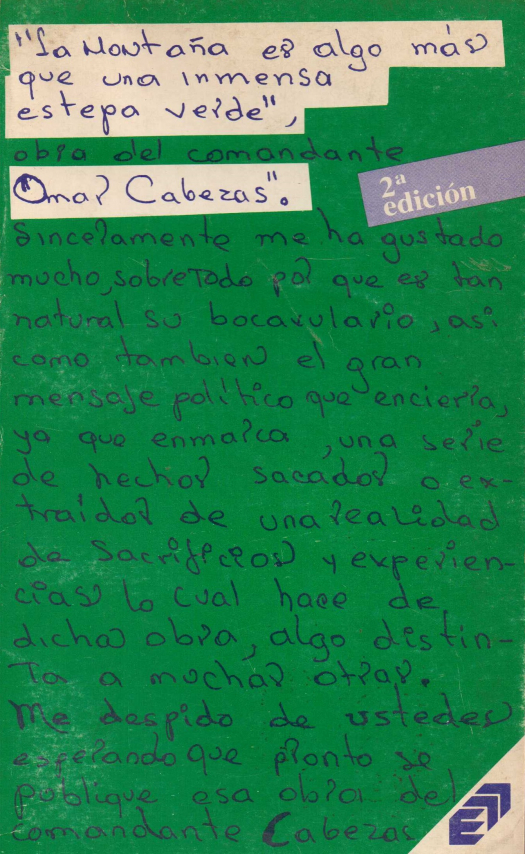 "La Montaña es algo más
que una inmensa
estepa verde",
obra del comandante
"Omar Cabezas".
2ª
edición
Sinceramente me ha gustado
mucho, sobre Todo por que es tan
natural su bocavulario, asi
como tambien el gran
mensaje político que encierra,
ya que enmarca, una serie
de hechos sacados o ex-
traídos de una realidad
de Sacrificios y experien-
cias lo cual hace de
dicha obra, algo distin-
Ta a muchas otras.
Me despido de ustedes
esperando que pronto se
publique esa obra del
comandante Cabezas